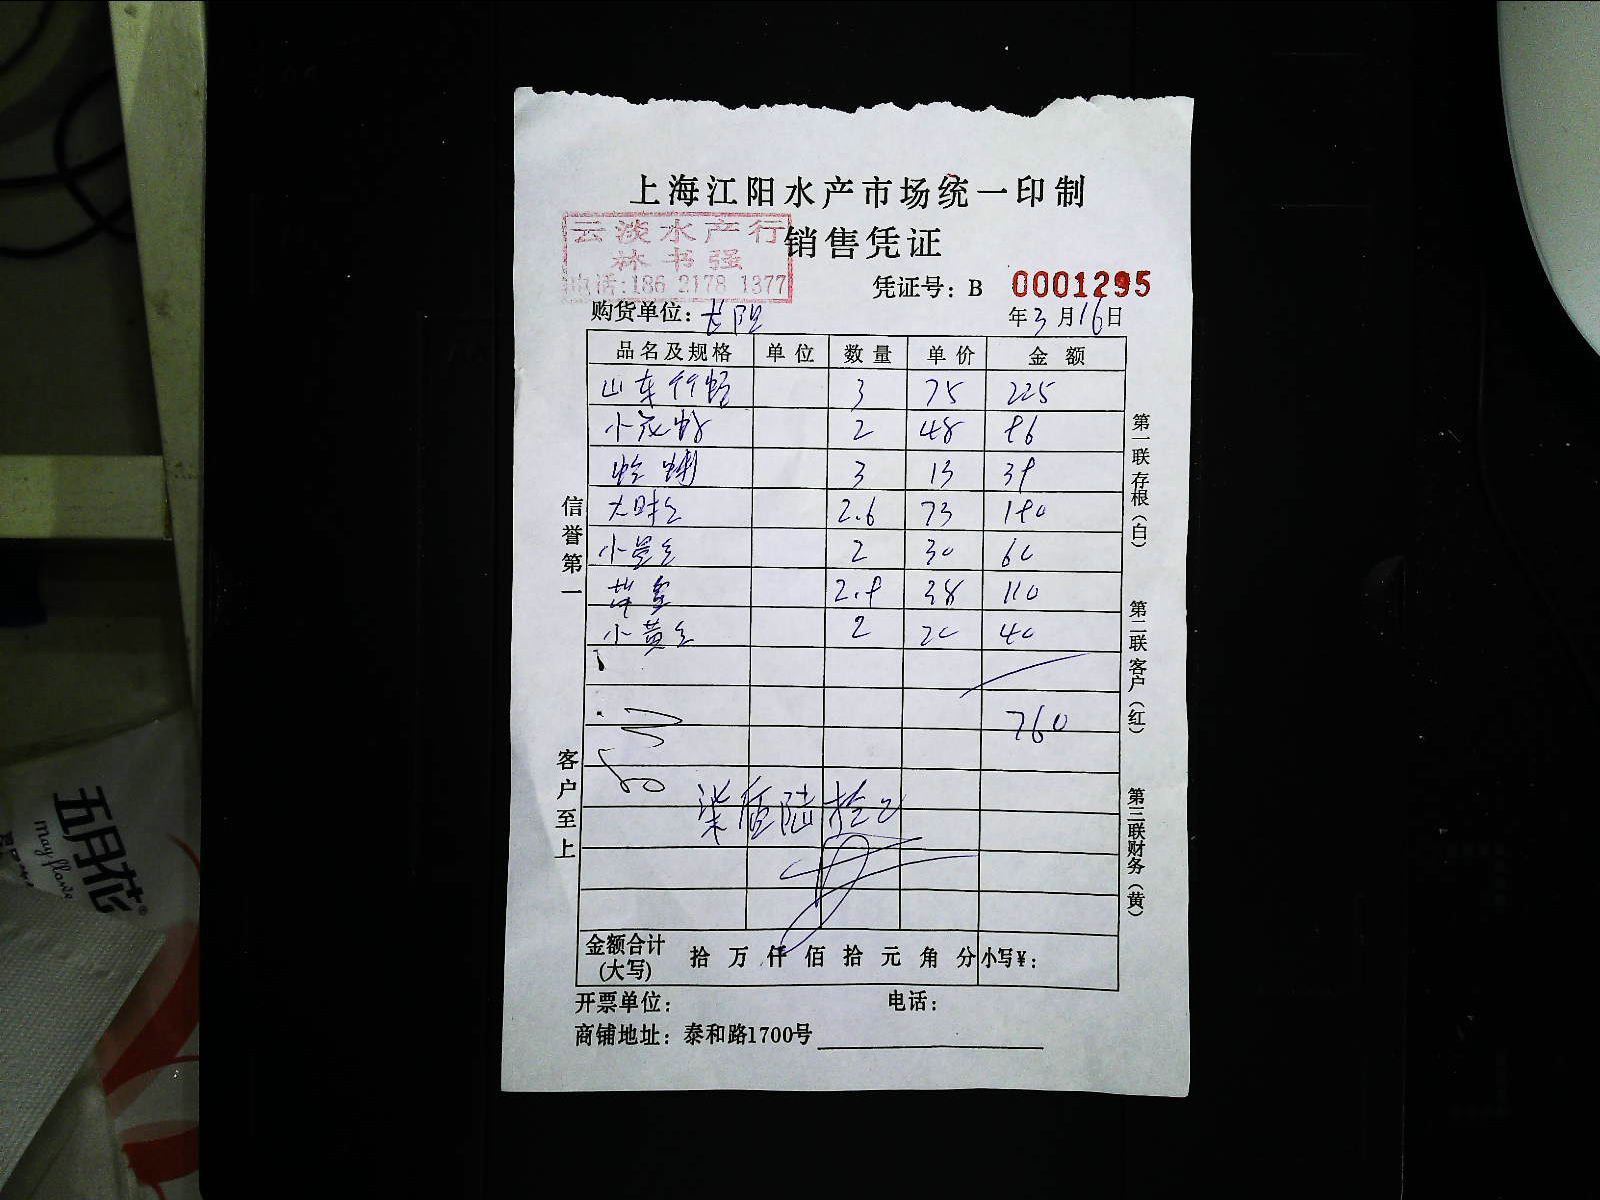 上海江阳水产市场统一印制
云淡水产行
林书强
电话:186 2178 1377
销售凭证
凭证号：B 0001295
购货单位：
年3月16日
品名及规格 单位 数量 单价 金额
山东竹蛏 3 75 225
小花蛤 2 48 96
蛤蜊 3 13 39
2.6 73 190
2 30 60
黄金 2.9 38 110
小黄 2 20 40
760
柒佰陆拾
金额合计(大写) 拾 万 仟 佰 拾 元 角 分 小写¥：
开票单位： 电话：
商铺地址：泰和路1700号
信誉第一
客户至上
第一联存根(白)
第二联客户(红)
第三联财务(黄)
五月花
may flower